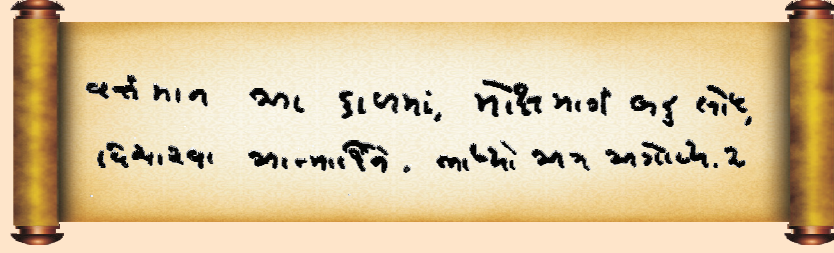 વર્તમાન આ કાળમાં, મોક્ષમાર્ગ બહુ લોપ,
વિચારવા આત્માર્થિને. ભાખ્યો અત્ર અગોપ્ય. ૨